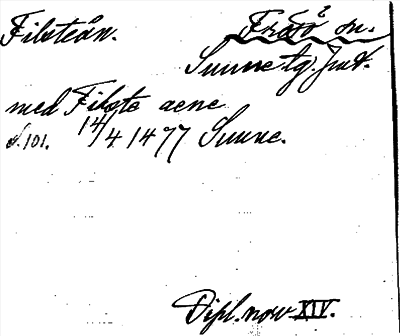 Filsteån. Frösö sn.
Sunne tg. Jmtl.
med Filste aene
s. 101. 14/4 1477 Sunne.
Dipl. norv XIV.